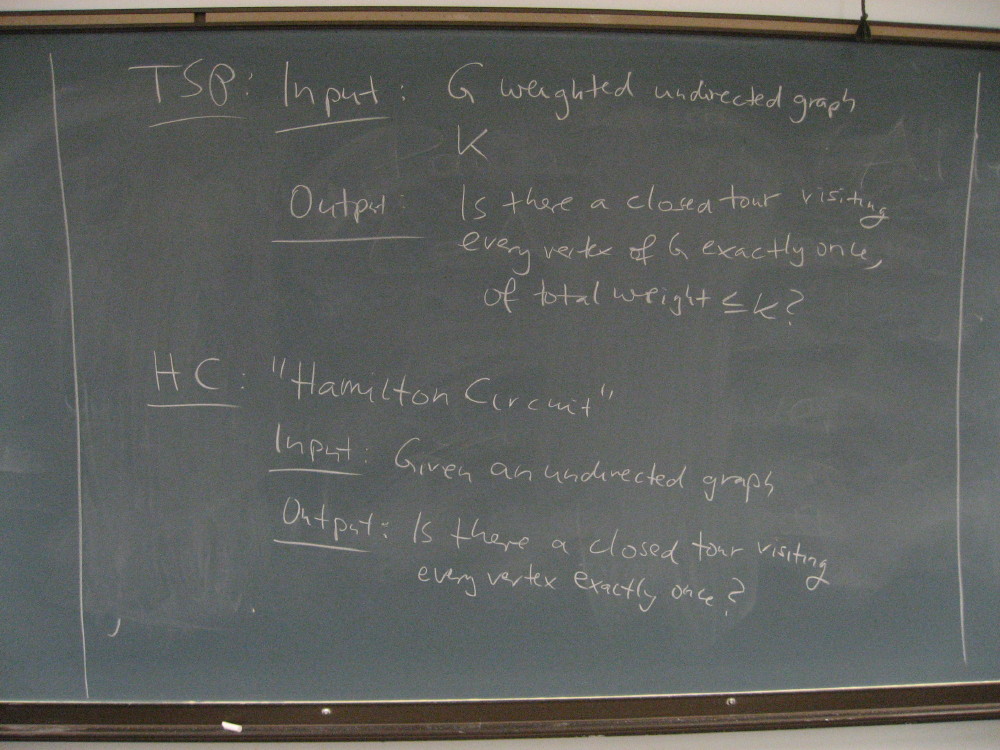 TSP: Input: G weighted undirected graph
K
Output: Is there a closed tour visiting
every vertex of G exactly once,
of total weight ≤ K?
HC: "Hamilton Circuit"
Input: Given an undirected graph
Output: Is there a closed tour visiting
every vertex exactly once?